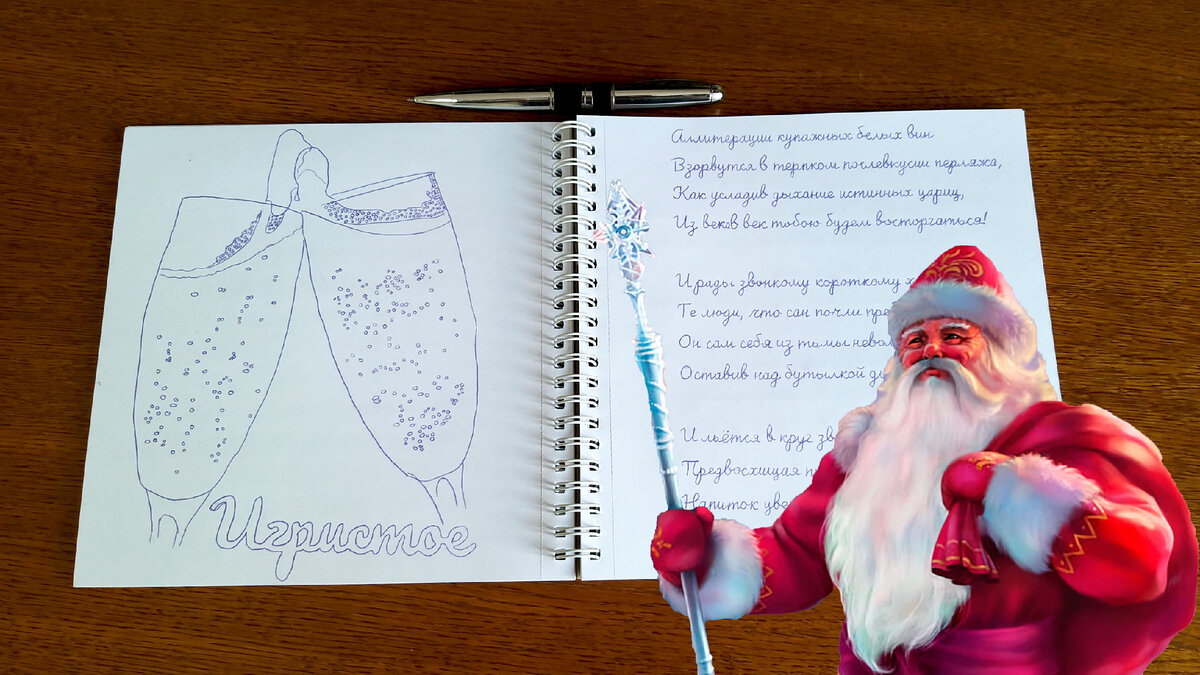 Игристое
Аллитерации купажных белых вин
Взорвутся в терпком послевкусии перляжа,
Как усладив дыхание истинных цариц,
Из века в век тобою будем восторгаться!
И рады звонкому короткому
Те люди, что сан почли
Он сам себя из тьмы
Оставив над бутылкой
И льётся в круг
Предвосхищая
Напиток